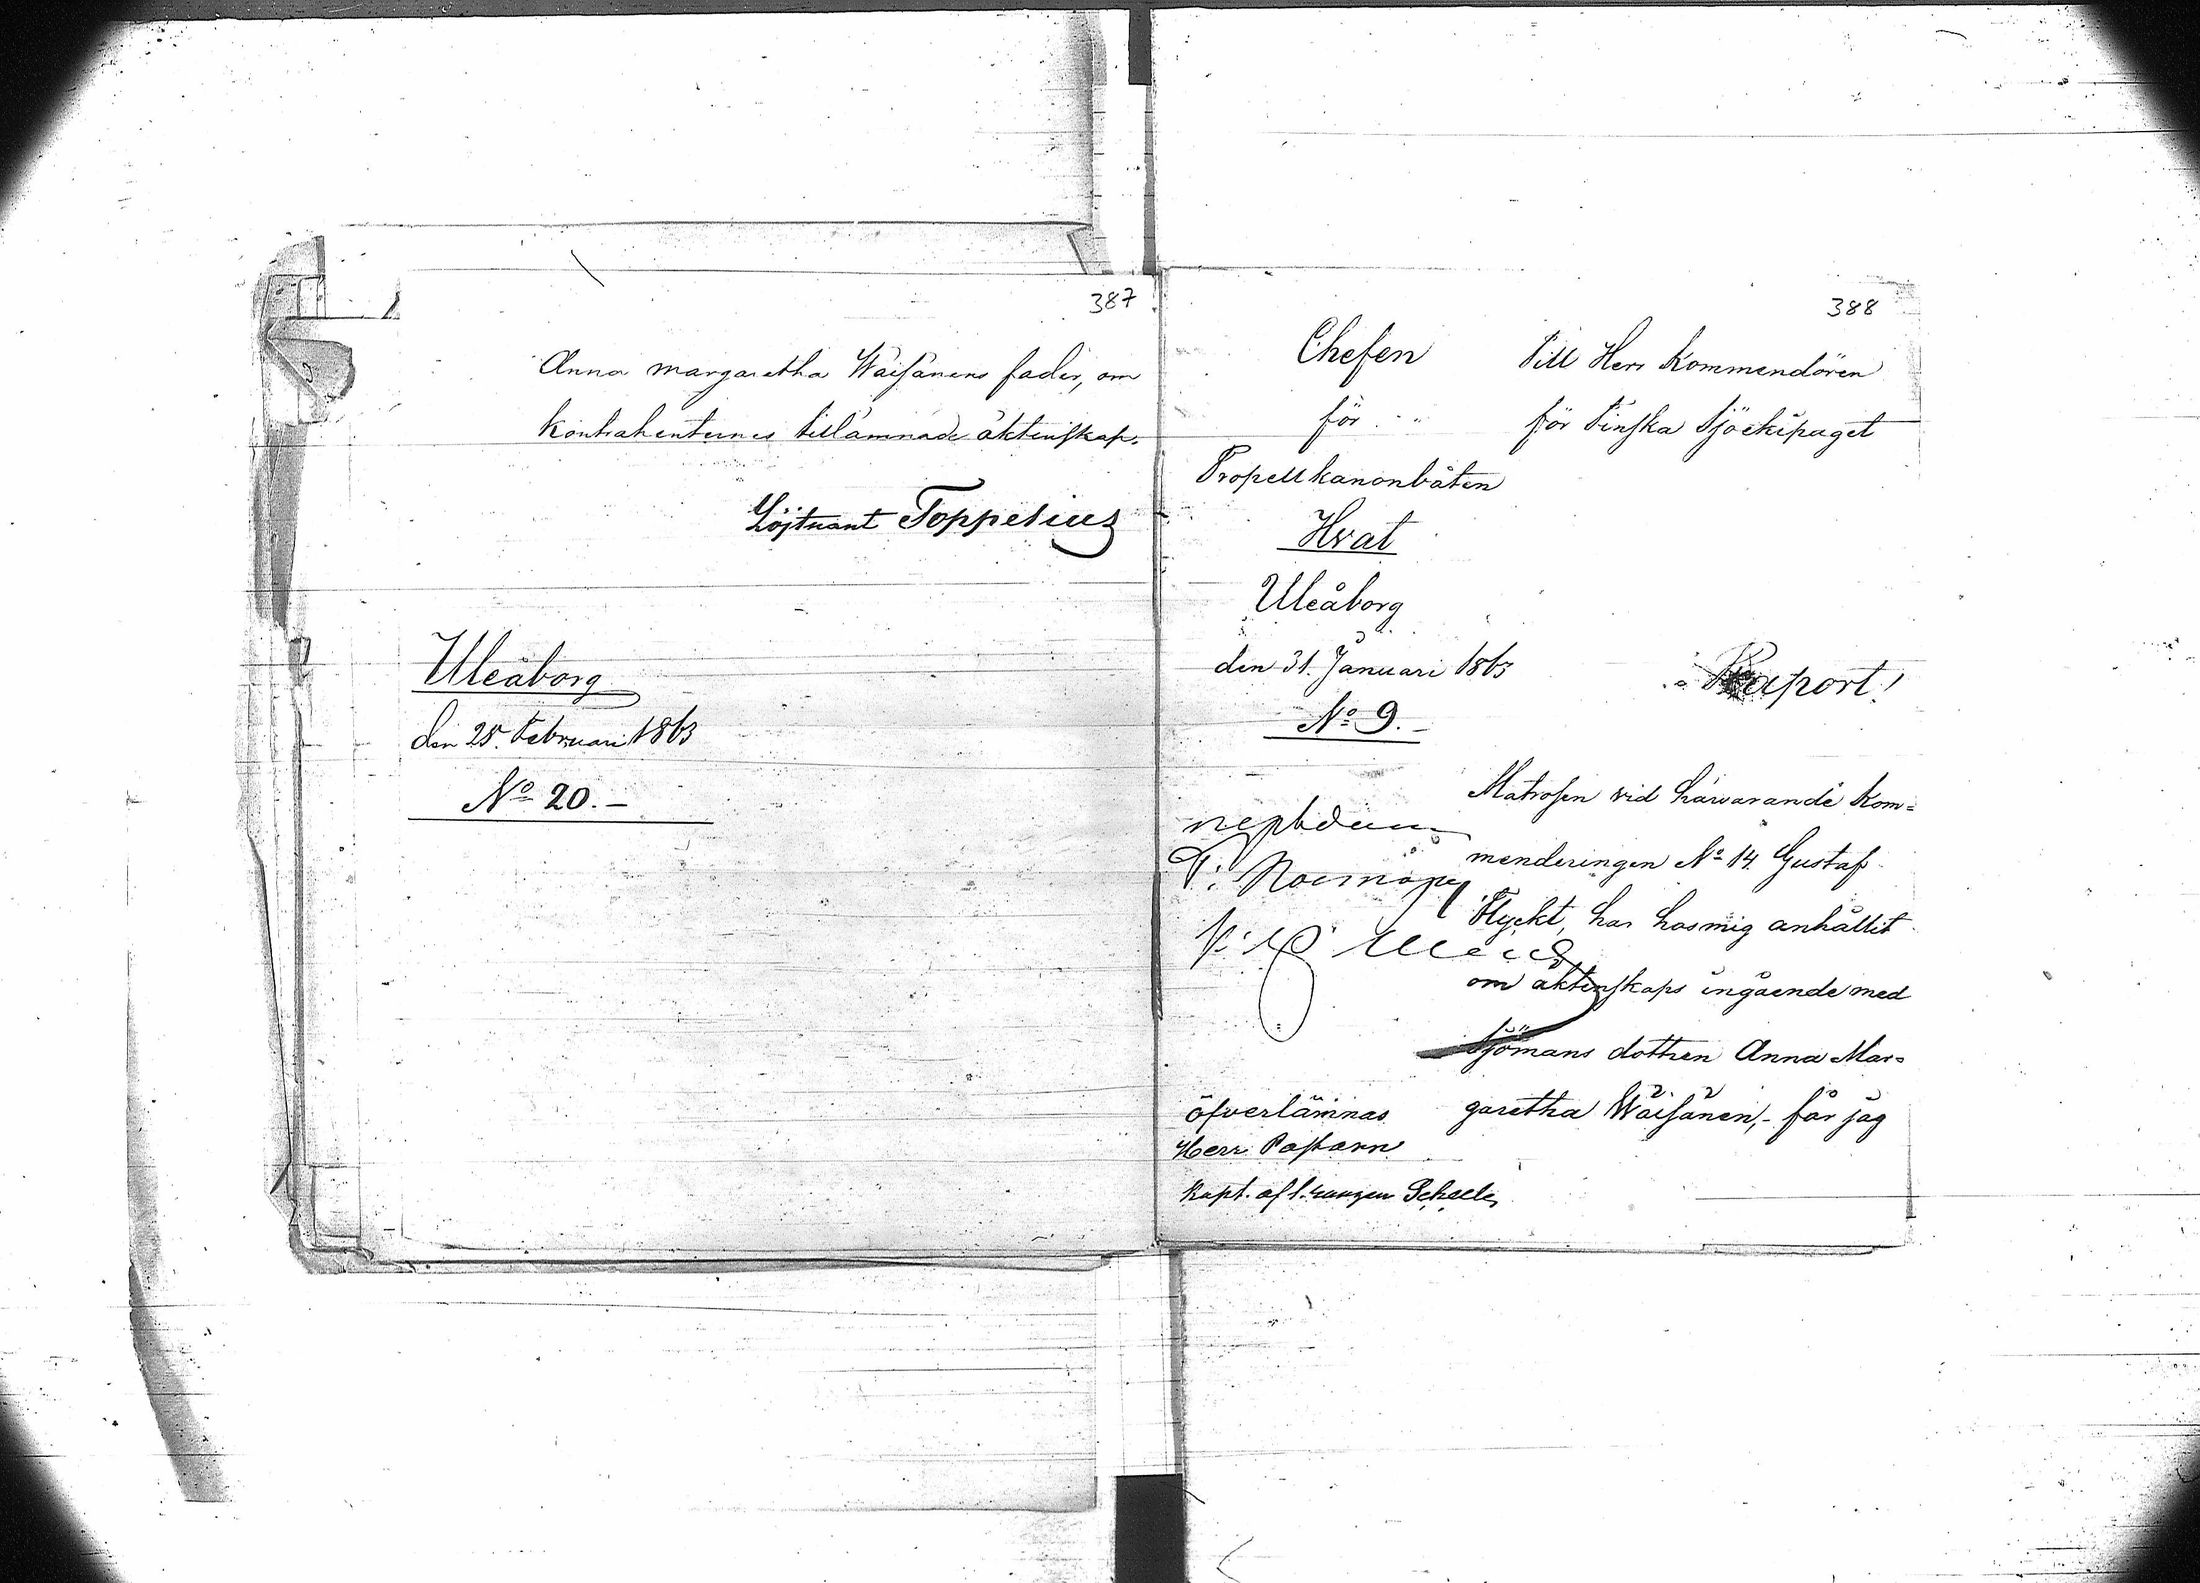 387
Anna Margaretha Wäisänens fader, om
kontrahenternes tillämnade äktenskap.
Löjtnant Toppelius
Uleåborg
den 25. Februari 1863
No 20.
388
Chefen
för
Propellkanonbåten
Hvat
Uleåborg
den 31. Januari 1863
No 9.
Till Herr Kommendören
för Finska Sjöekipaget
Raport!
Matrosen vid härvarande Kom=
menderingen No 14 Gustaf
Flyckt, har hos mig anhållit
om äktenskaps ingående med
Sjömans dottren Anna Mar=
garetha Wäisänen,- får jag
öfverlämnas
Herr Pastorn
Kapt. af 1. rangen Scheele